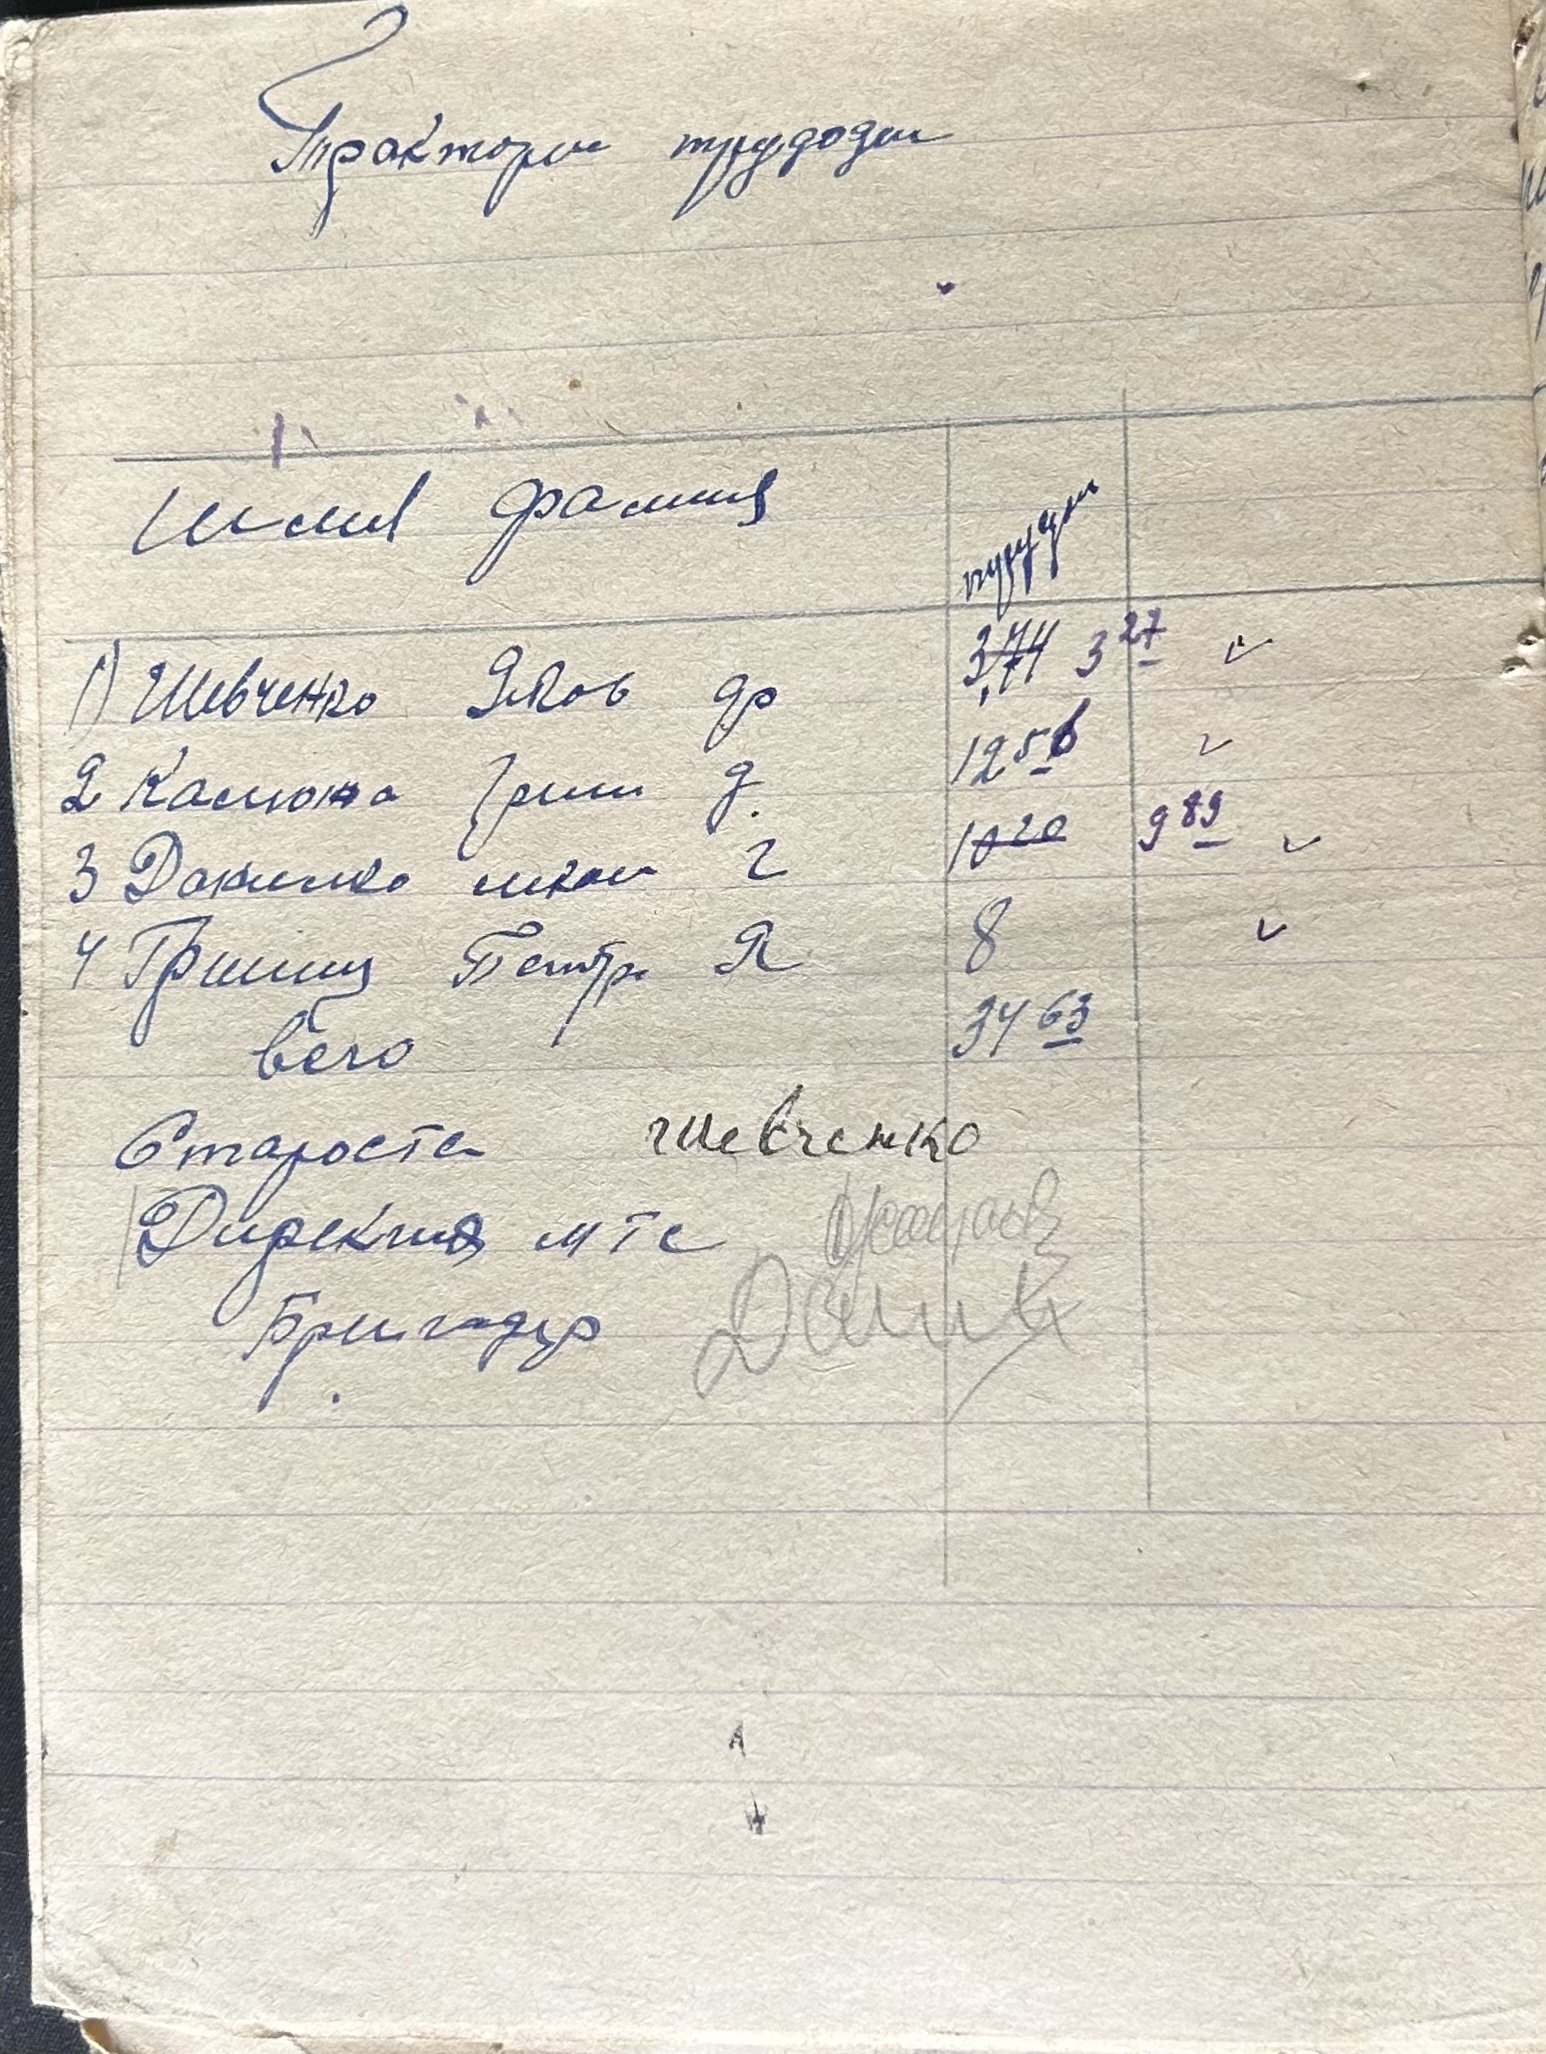 Трактори трудодни
Имя фамил трудодн
1) Шевченко Яков Ф 3,74 3 27 v
2 Калюжа Гриш Д. 12 56 v
3 Данилко Г 10 20 9 89 v
4 Гриниц Петр Я 8 v
Всего 34 63
Староста Шевченко
Директор МТС
Бригадир